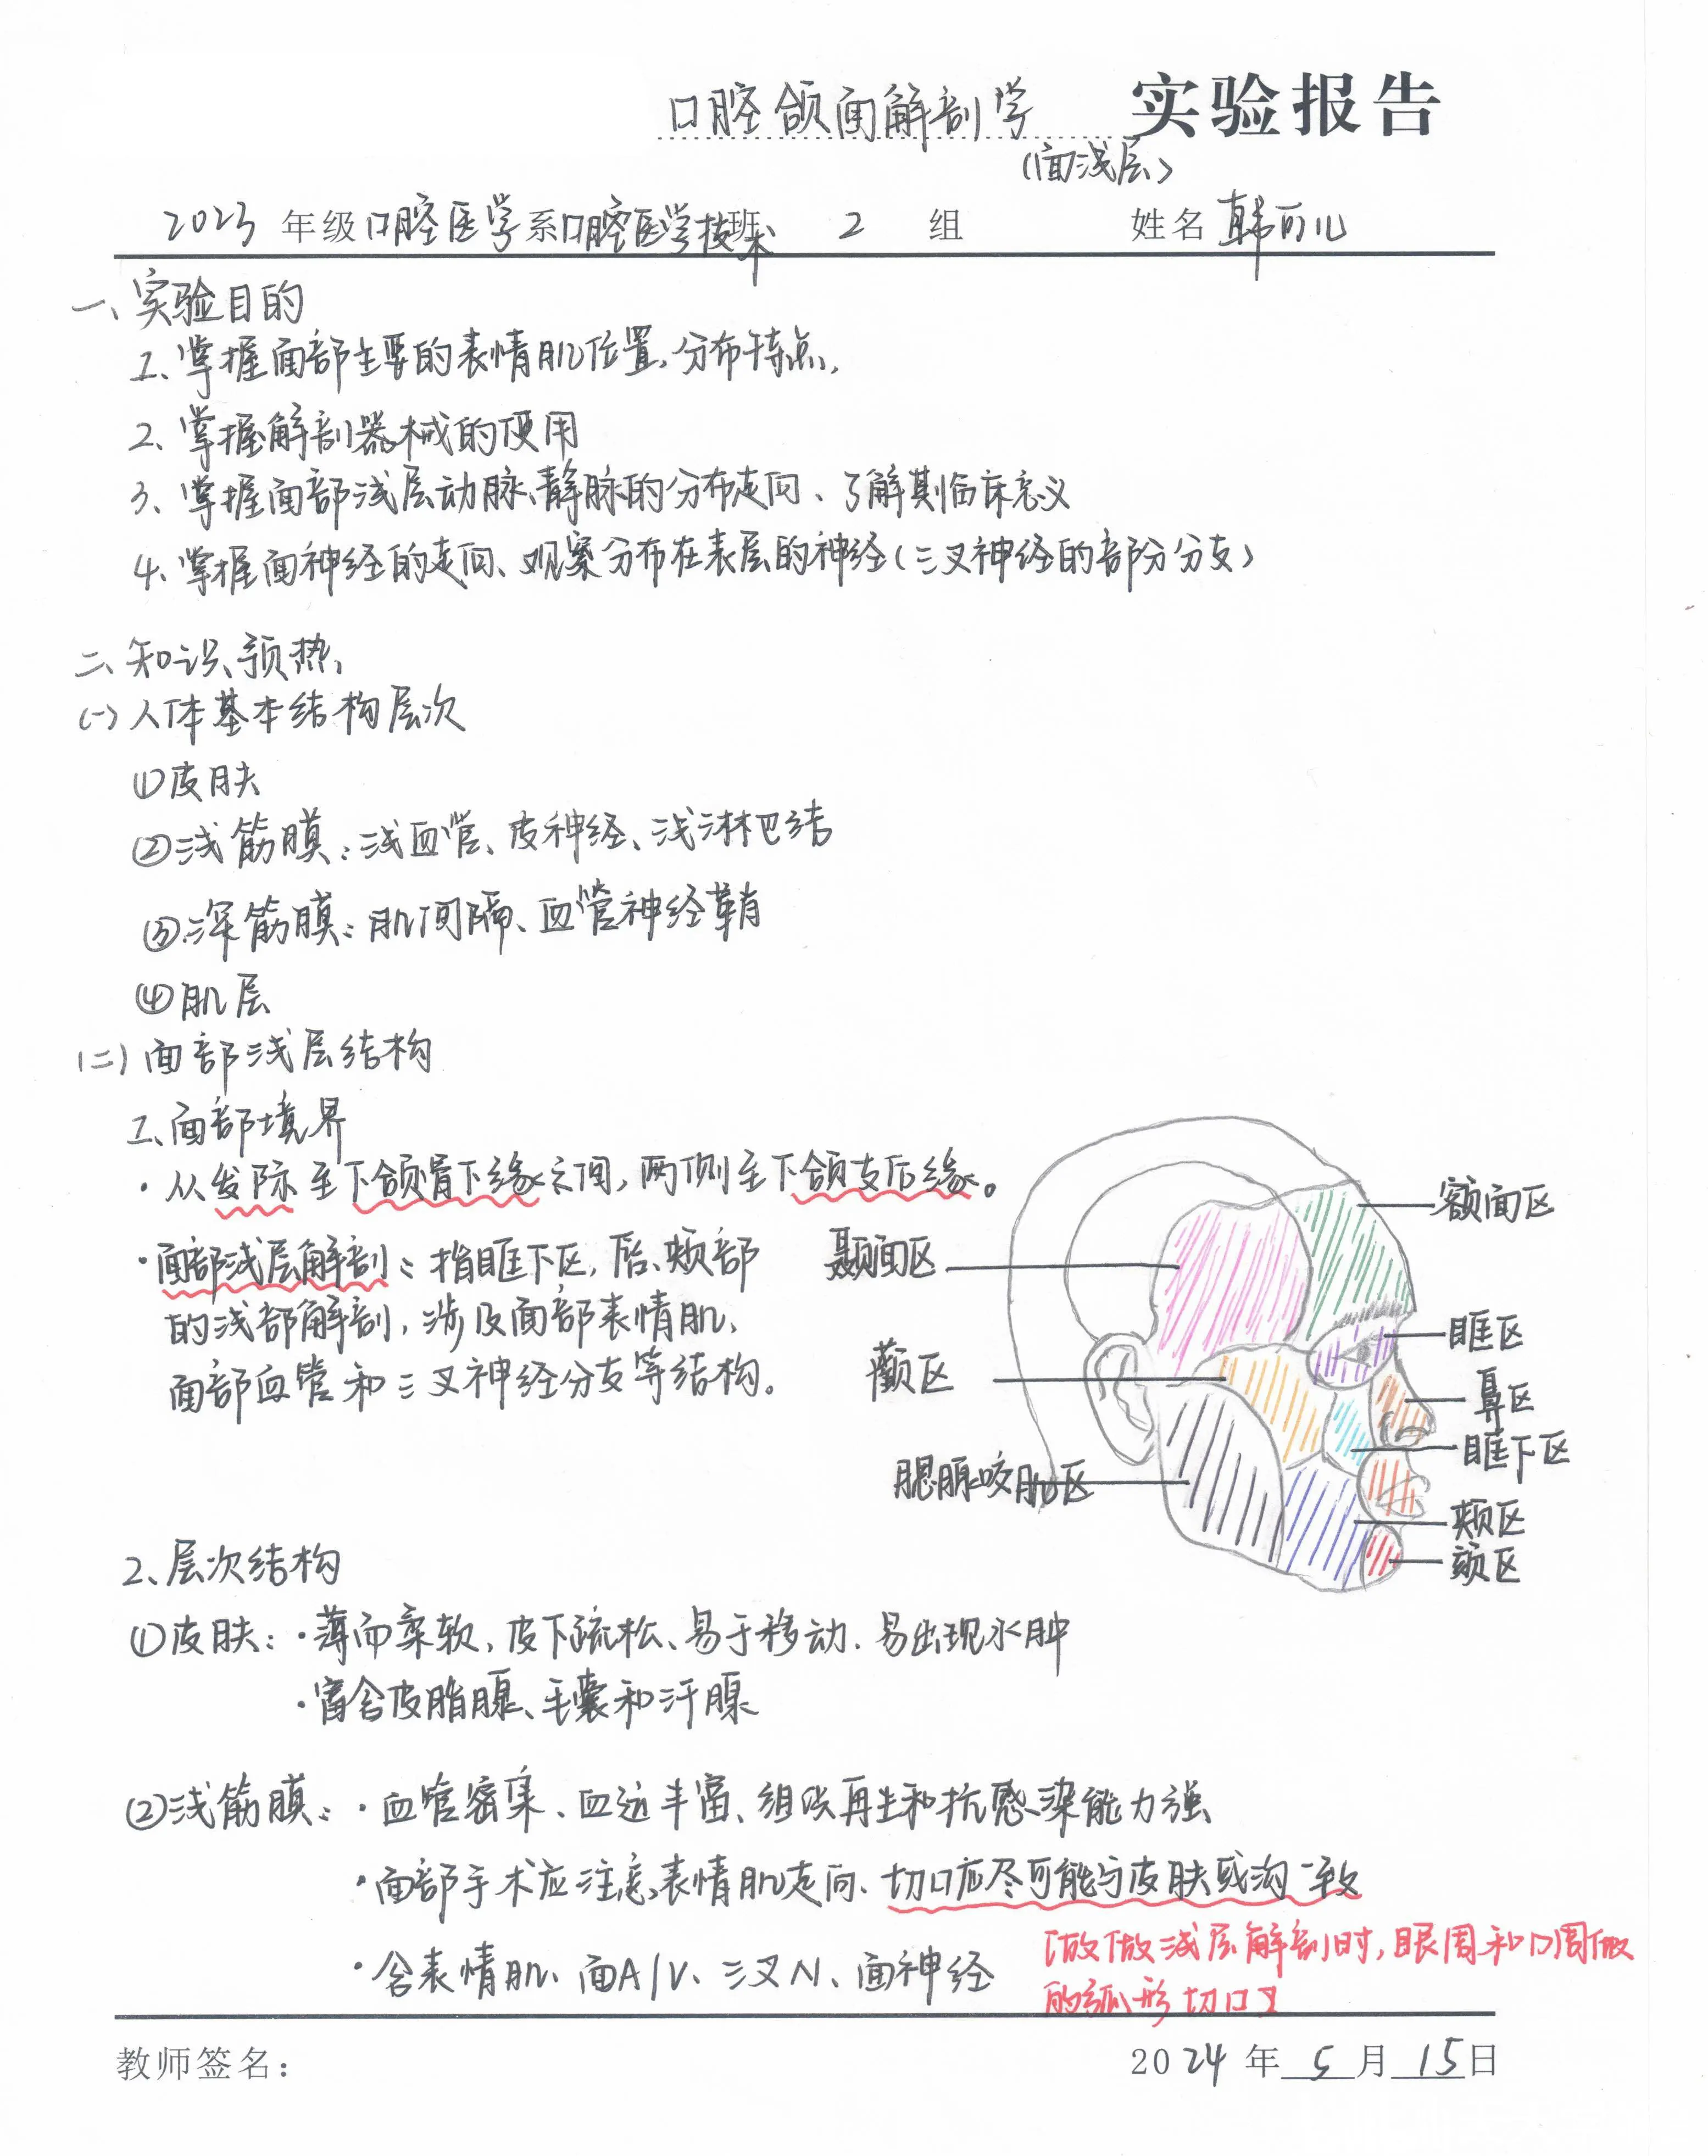 口腔颌面解剖学 实验报告
(面浅层)
2023 年级口腔医学系口腔医学技术班 2 组 姓名 韩可儿
一、实验目的
1、掌握面部主要的表情肌位置,分布特点,
2、掌握解剖器械的使用
3、掌握面部浅层动脉、静脉的分布走向、了解其临床意义
4、掌握面神经的走向、观察分布在表层的神经(三叉神经的部分分支)
二、知识预热、
(一)人体基本结构层次
①皮肤
②浅筋膜:浅血管、皮神经、浅淋巴结
③深筋膜:肌间隔、血管神经鞘
④肌层
(二)面部浅层结构
1、面部境界
·从发际至下颌骨下缘之间,两侧至下颌支后缘。
·面部浅层解剖:指眶下区,唇、颊部
的浅部解剖,涉及面部表情肌、
面部血管和三叉神经分支等结构。
额面区
颞面区
眶区
颧区
鼻区
眶下区
腮腺咬肌区
颊区
颏区
2、层次结构
①皮肤:·薄而柔软,皮下疏松、易于移动.易出现水肿
·富含皮脂腺、毛囊和汗腺
②浅筋膜:·血管密集、血运丰富、组织再生和抗感染能力强
·面部手术应注意表情肌走向、切口应尽可能与皮肤或沟一致
·含表情肌、面A/V、三叉N、面神经
[故做浅层解剖时,眼周和口周做
的弧形切口]
教师签名:
2024 年 5 月 15日